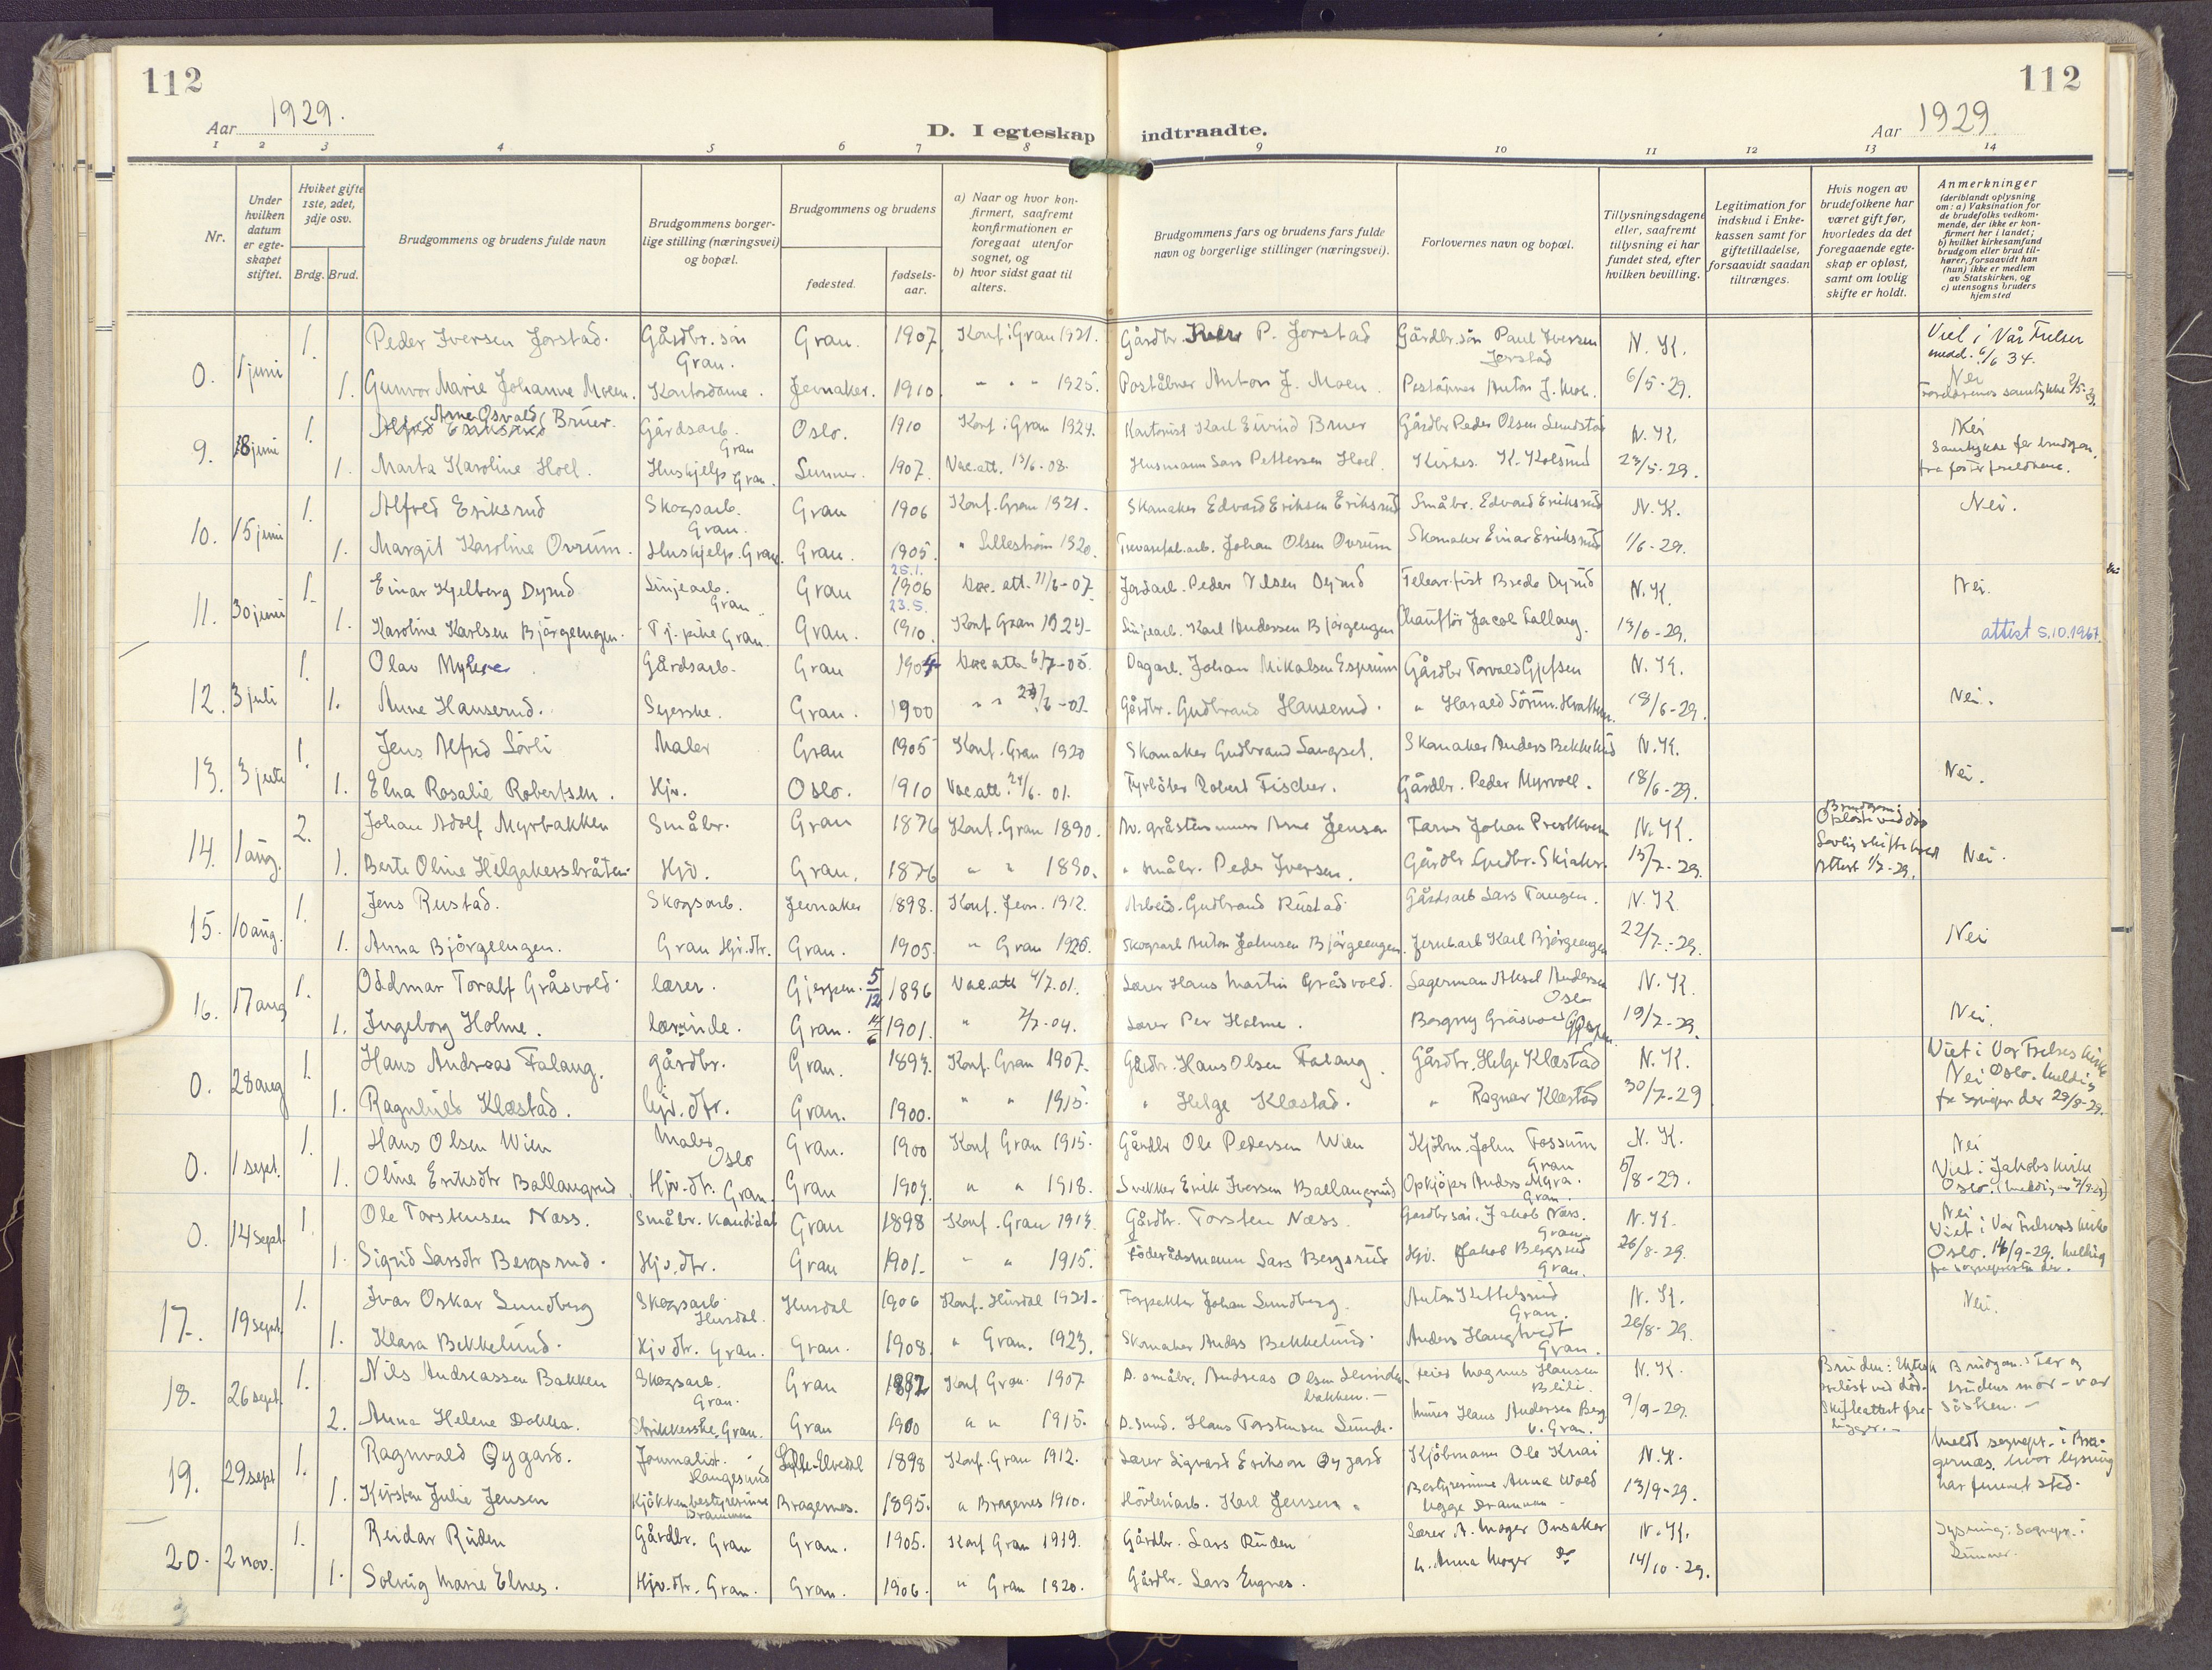 112
112
Aar 1929.
D. I egteskap indtraadte.
Aar 1929.
1 2 3 4 5 6 7 8 9 10 11 12 13 14
Nr.
Under hvilken datum er egteskapet stiftet.
Hviket gifte 1ste, 2det, 3dje osv.
Brdg. Brud.
Brudgommens og brudens fulde navn
Brudgommens borgerlige stilling (næringsvei) og bopæl.
Brudgommens og brudens
fødested.
fødselsaar.
a) Naar og hvor konfirmert, saafremt konfirmationen er foregaat utenfor sognet, og
b) hvor sidst gaat til alters.
Brudgommens fars og brudens fars fulde navn og borgerlige stillinger (næringsvei).
Forlovernes navn og bopæl.
Tillysningsdagene eller, saafremt tillysning ei har fundet sted, efter hvilken bevilling.
Legitimation for indskud i Enkekassen samt for giftetilladelse, forsaavidt saadan tiltrænges.
Hvis nogen av brudefolkene har været gift før, hvorledes da det foregaaende egteskap er opløst, samt om lovlig skifte er holdt.
Anmerkninger
(deriblandt oplysning om: a) Vaksination for de brudefolks vedkommende, der ikke er konfirmert her i landet; b) hvilket kirkesamfund brudgom eller brud tilhører, forsaavidt han (hun) ikke er medlem av Statskirken, og c) utensogns bruders hjemsted
0. 1 juni 1. Peder Iversen Jorstad. Gårdbr. søn Gran. Gran. 1907 Konf. i Gran 1921. Gårdbr. P. Jorstad Gårdbr. søn Paul Iversen Jorstad N. K. Viet i Vår Frelser medd. 6/6 34.
1. Gunvor Marie Johanne Moen. Kontordame. Jevnaker. 1910. " " " 1925. Poståbner Anton J. Moen. Poståpner Anton J. Moen. 6/5-29. Nei Foreldrenes samtykke
9. 18 juni 1. Arne Osvald Bruer. Gårdsarb. Gran Oslo. 1910 Konf. i Gran 1924. Kontorist Karl Eivind Bruer Gårdbr. Peder Olsen Lundstad N. K. Nei Samtykke for brudgom.
1. Marta Karoline Hoel. Huskjelp Gran. Lunner. 1907. Vac. att. 13/6-08. Husmann Lars Pettersen Hoel. Kirkes. K. Kolsrud 23/5-29. fra fosterforeldrene.
10. 15 juni 1. Alfred Eriksrud Skogsarb. Gran. Gran 1906 Konf. Gran 1921. Skomaker Edvard Eriksen Eriksrud Småbr. Edvard Eriksrud N. K. Nei.
1. Margit Karoline Ovrum. Huskjelp. Gran. Gran. 1905. " Lillestrøm 1920. Trevarefab. arb. Johan Olsen Ovrum Skomaker Einar Eriksrud 1/6-29.
11. 30 juni 1. Einar Kjelberg Dynna Linjearb. Gran 25.1. 1906 Vac. att. 11/6-07 Jordarb. Peder Nilsen N. K. Nei.
1. Karoline Karlsen Bjørgeengen. Tj. pike Gran. Gran. 23.5. 1910. Konf Gran 1924. Linjearb. Karl Andersen Bjørgeengen Chauffør Jacob Fallang. 13/6-29. attest 5.10.1967.
12. 3 juli 1. Olav Myhre. Gårdsarb. Gran Vac atta 6/7-05. Dagarb. Johan Mikalsen Esprum Gårdbr Torvald Gjefsen N. K.
1. Anne Hanserud. Syerske. Gran. 1900 Gårdbr. Gudbrand Hanserud. " Harald Sörum. 18/6-29. Nei.
13. 3 juli 1. Jens Alfred Sørli Maler Gran 1905 Konf. Gran 1920 Skomaker Gudbrand Sangset. Skomaker Anders Bekkelund N. K.
1. Elna Rosalie Robertsen. Hjv. Oslo. 1910 Vac. att. Fyrbøter Robert Fischer. Gårdbr. Peder Myrvoll. 18/6-29. Nei.
14. 1 aug. 2. Johan Adolf Myrbakken Småbr. Gran 1876 Konf. Gran 1890. Av. gråstensmurer Arne Jensen Farver Johan N. K. Brudgom: Opløst ved død Lovlig skifte holdt
1. Berte Oline Helgakersbråten. Hjv. Gran. 1876 " " 1890. " småbr. Peder Iversen. Gårdbr. Gudbr. Skiaker. 15/7-29. Attest 1/7-29. Nei.
15. 10 aug. 1. Jens Rustad. Skogsarb. Jevnaker 1898. Konf. Jevn. 1912. Arbeid. Gudbrand Rustad. Gårdsarb Lars Tangen. N. K.
1. Anna Bjørgeengen. Gran Hjv. dtr. Gran. 1905. " Gran 1920. Skogsarb Anton Johnsen Bjørgeengen. Jernb.arb Karl Bjørgeengen 22/7-29. Nei
16. 17 aug 1. Oddmar Toralf Gråsvold. lærer. Gjerpen. 5/12 1896 Vac. att 4/7.01. Lærer Hans Martin Gråsvold. Lagerman Aksel Andersen Oslo N. K.
1. Ingeborg Holme. lærinde. Gran. 14/6 1901. " 2/7-04. Lærer Per Holme. Borgny Gråsvold Gjerpen. 19/7-29. Nei.
0. 28 aug 1. Hans Andreas Falang. gårdbr. Gran. 1893. Konf. Gran 1907. Gårdbr. Hans Olsen Falang. Gårdbr. Helge Klæstad N. K. Viet i Vor Frelsers kirke Nei Oslo. Melding
1. Ragnhild Klæstad. hjv. dtr. Gran. 1900. " " 1915. " Helge Klæstad. " Ragnar Klæstad 30/7-29 fra sognepr. der 29/8-29.
0. 1 sept. 1. Hans Olsen Wien Maler Oslo Gran. 1900 Konf Gran 1915. Gårdbr Ole Pedersen Wien Kjøbm. John Fossum Gran N. K. Nei
1. Oline Eriksdtr Ballangrud Hjv. dtr. Gran. Gran 1904. " " 1918. Snekker Erik Iversen Ballangrud Opkjøper Anders Gran. 5/8-29. Viet i Jakobs kirke Oslo.
0. 14 sept. 1. Ole Torstensen Næss. Småbr. kandidat Gran 1898 Konf. Gran 1913 Gårdbr. Torsten Næss. Gårdbr.søn. Jakob Næss. Gran. N. K. Nei Viet i Vor Frelsers kirke
1. Sigrid Larsdtr Bergsrud. Hjv. dtr. Gran 1901. " " 1915. Föderådsmann Lars Bergsrud Hjv. Jakob Bergsrud Gran. 26/8-29. Oslo. 14/9-29. Melding fra sognepresten der.
17. 19 sept. 1. Ivar Oskar Lundberg Skogsarb. Hurdal. Hurdal 1906 Konf. Hurdal 1921. Forpakter Johan Lundberg. Anton Kittelsrud Gran. N. K. Nei.
1. Klara Bekkelund. Hjv dtr. Gran. Gran. 1908. " Gran. 1923. Skomaker Anders Bekkelund. Anders Haugtvedt Gran. 26/8-29.
18. 26 sept. 1. Nils Andreassen Bakken Skogsarb. Gran. Gran 1892 Konf Gran. 1907 D. småbr. Andreas Olsen Feier Magnus Hansen N. K. Bruden: Ekteskap opløst ved død. Brudgom.s Far og brudens mor - var
2. Anna Helene Dokka. Strikkerske. Gran. Gran 1900 " " 1915. D. smd. Hans Torstensen Lunde. Murer Hans Andersen Berg v. Gran. 9/9-29. Skifteattest foreligger. søsken.
19. 29 sept 1. Ragnvald Øygard. Journalist. Haugesund Lille-Elvedal 1898 Konf. Gran 1912. Lærer Sigvard Erikson Øygard Kjøbmann Ole Knai N. K. Meldt sognepr. i Bragernæs, hvor lysning
1. Kirsten Julie Jensen Kjøkkenbestyrerinne Drammen Bragernes. 1895. " Bragernes 1910. Høvleriarb. Karl Jensen. Bestyrerinne Anna Wold Drammen 13/9-29. har funnet sted.
20. 2 nov. 1. Reidar Ruden Gårdbr. Gran Gran. 1905. Konf Gran 1919. Gårdbr. Lars Ruden Lærer A. Moger Onsaker N. K. Lysning: sognepr. i Lunner.
1. Solveig Marie Elnes. Hjv. dtr. Gran. Gran. 1906. " Gran 1920. Gårdbr. Lars Engnes. fr. Anna Moger 14/10-29.